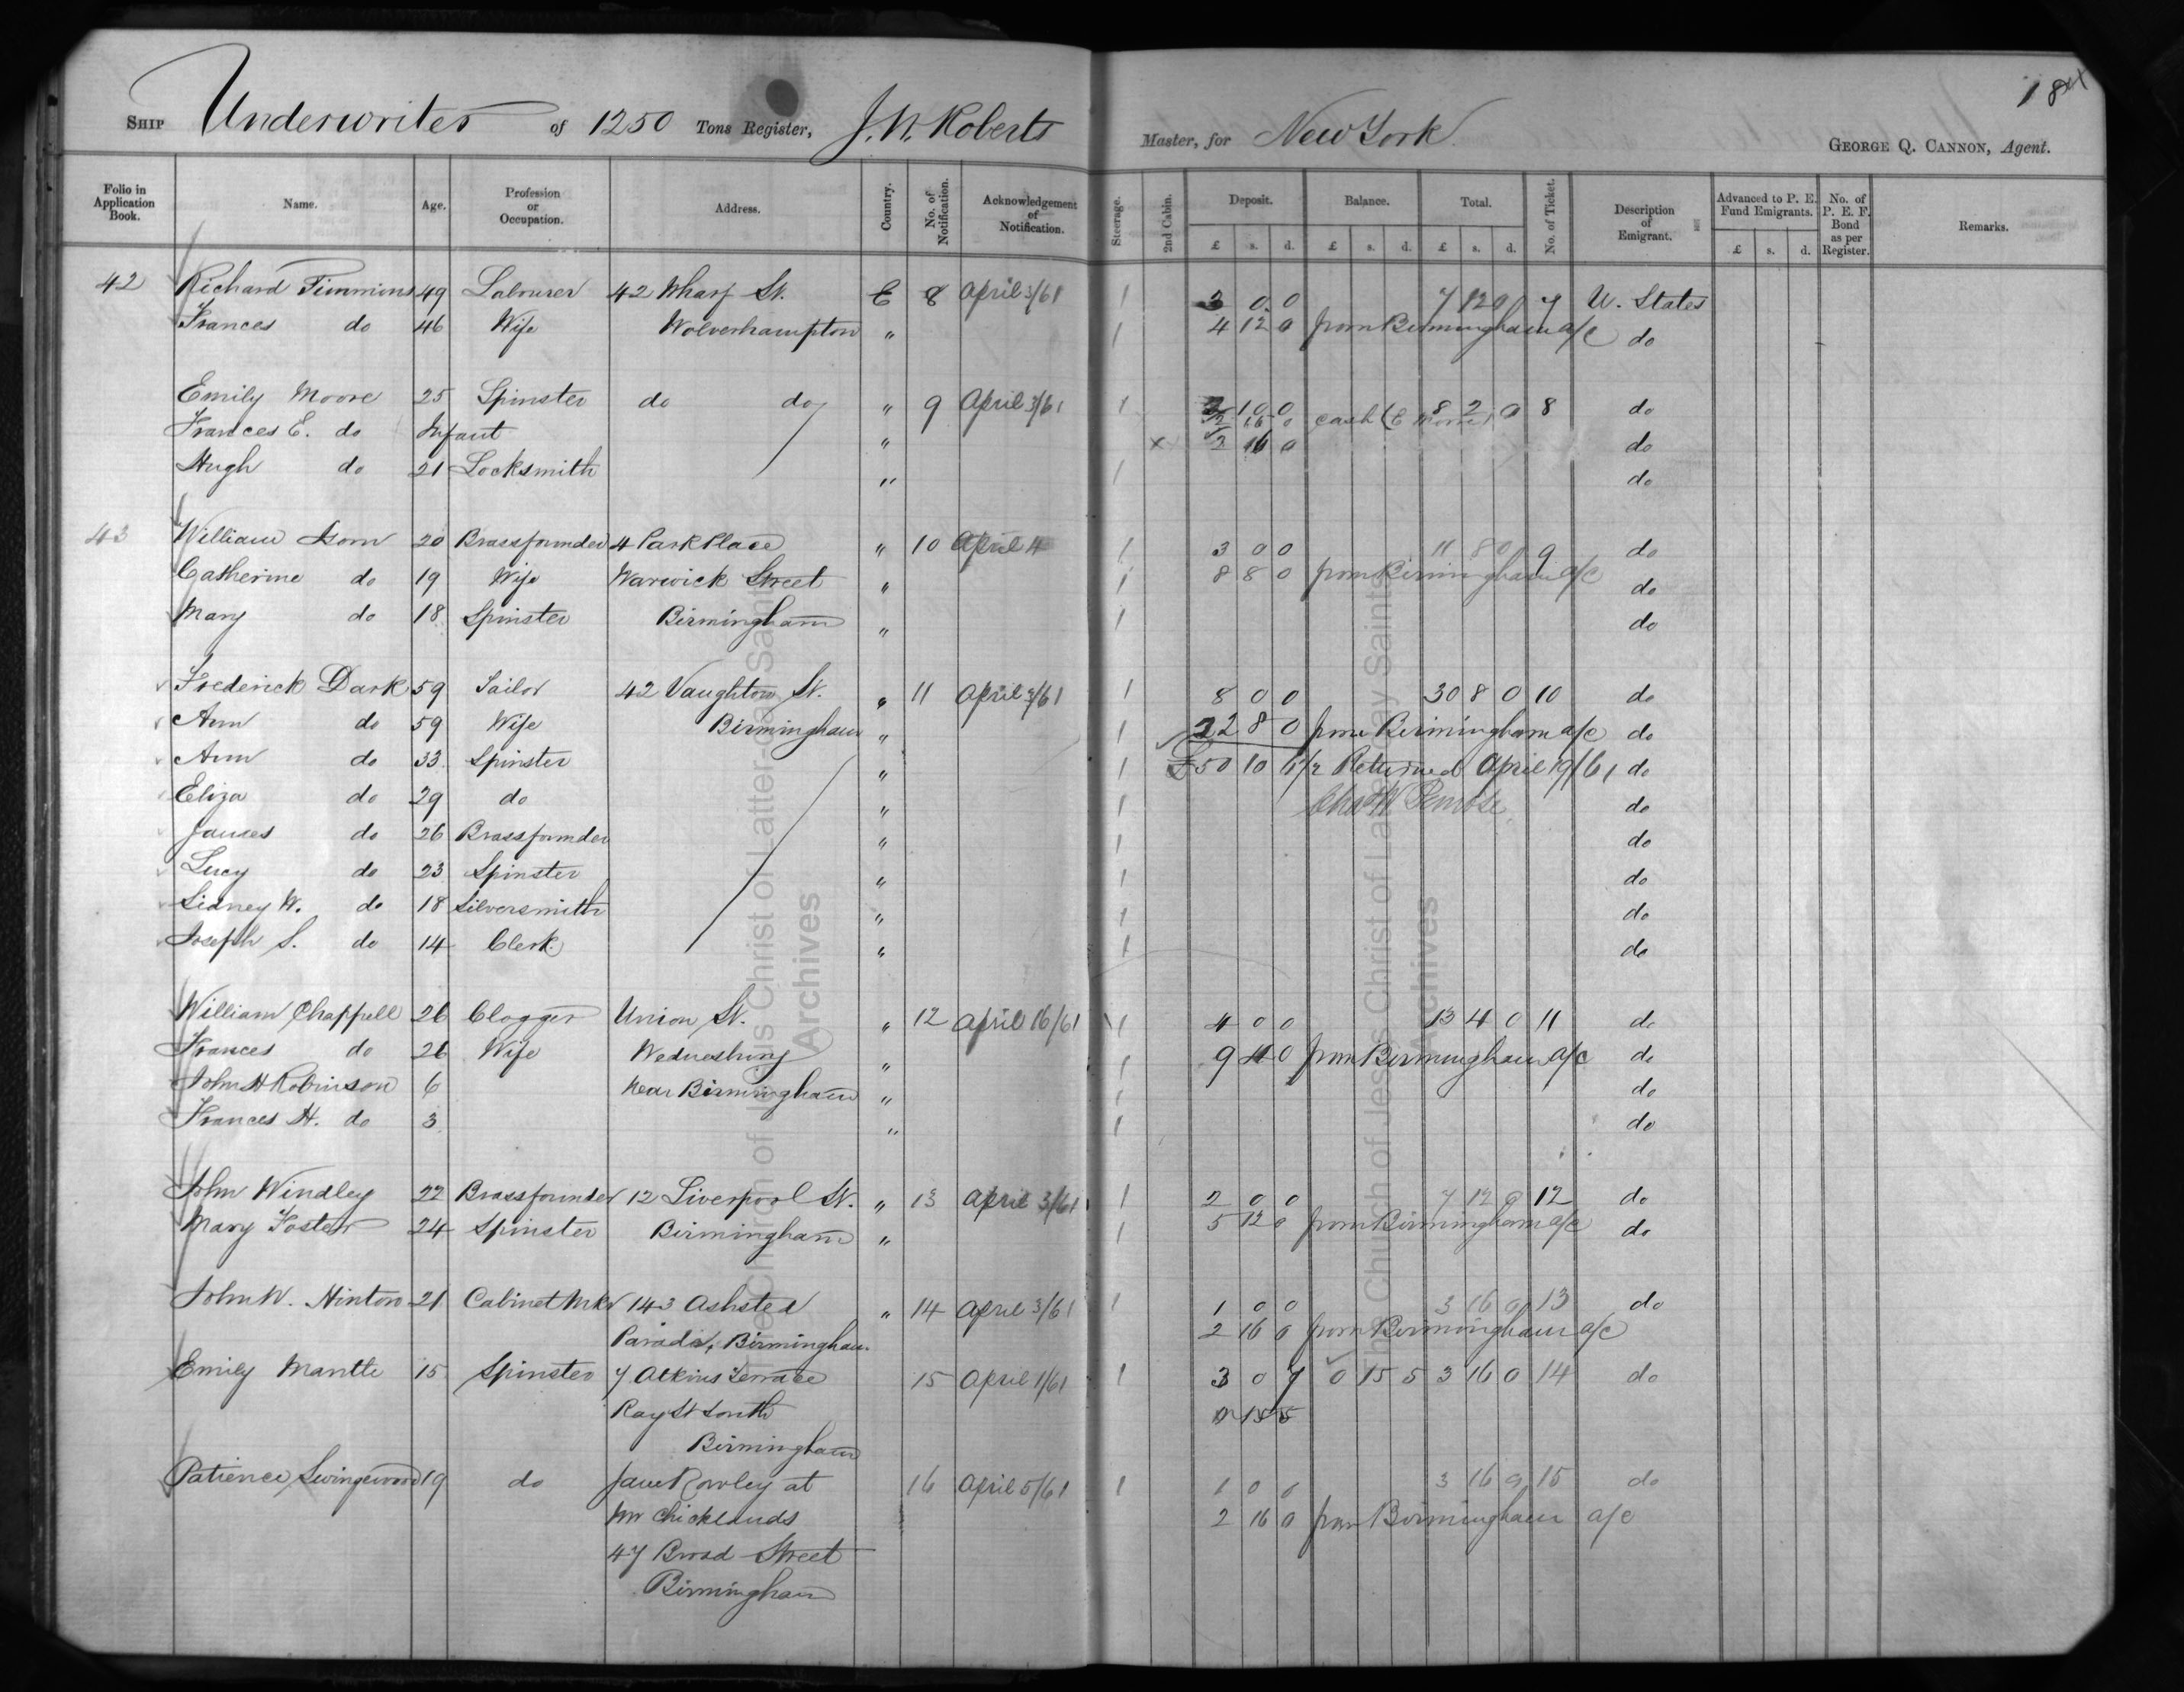 184
SHIP Underwriter of 1250 Tons Register, J. W. Roberts Master, for New York GEORGE Q. CANNON, Agent.
Folio in Application Book. Name. Age. Profession or Occupation. Address. Country. No. of Notification. Acknowledgement of Notification. Steerage. 2nd Cabin. Deposit. £ s. d. Balance. £ s. d. Total. £ s. d. No. of Ticket. Description of Emigrant. Advanced to P. E. Fund Emigrants. £ s. d. No. of P. E. F. Bond as per Register. Remarks.
42 Richard Timmins 49 Labourer 42 Wharf St. E 8 April 3/61 1 3 0 0 7 12 0 7 U. States
Frances do 46 Wife Wolverhampton " 1 4 12 0 from Birmingham a/c do
Emily Moore 25 Spinster do do " 9 April 3/61 1 1 0 0 8 2 0 8 do
Frances E. do Infant " 2 16 0 cash (E Moore) do
Hugh do 21 Locksmith " 1 2 16 0 do
43 William Isom 20 Brassfounder 4 Park Place " 10 April 4 1 3 0 0 11 8 0 9 do
Catherine do 19 Wife Warwick Street " 1 8 8 0 from Birmingham a/c do
Mary do 18 Spinster Birmingham " 1 do
Frederick Dark 59 Tailor 42 Vaughton St. " 11 April 3/61 1 8 0 0 30 8 0 10 do
Ann do 59 Wife Birmingham " 1 22 8 0 from Birmingham a/c do
Ann do 33 Spinster " 1 £50 10 6 1/2 Returned April 19/61 do
Eliza do 29 do " 1 Chas W Penrose do
James do 26 Brassfounder " 1 do
Lucy do 23 Spinster " 1 do
Sidney W. do 18 Silversmith " 1 do
Joseph S. do 14 Clerk " 1 do
William Chappell 26 Clogger Union St. " 12 April 16/61 1 4 0 0 13 4 0 11 do
Frances do 26 Wife Wednesbury " 1 9 4 0 from Birmingham a/c do
John H Robinson 6 near Birmingham " 1 do
Frances H. do 3 " 1 do
John Windley 22 Brassfounder 12 Liverpool St. " 13 April 3/61 1 2 0 0 7 12 0 12 do
Mary Foster 24 Spinster Birmingham " 1 5 12 0 from Birmingham a/c do
John W. Hinton 21 Cabinet Mkr 143 Ashsted " 14 April 3/61 1 1 0 0 3 16 0 13 do
Parade, Birmingham. 2 16 0 from Birmingham a/c
Emily Mantle 15 Spinster 7 Atkins Terrace 15 April 1/61 1 3 0 7 0 15 5 3 16 0 14 do
Ray St South 0 15 5
Birmingham
Patience Swingewood 19 do Jane Rowley at 16 April 5/61 1 1 0 0 3 16 0 15 do
Mr Chicklands 2 16 0 from Birmingham a/c
47 Broad Street
Birmingham
The Church of Jesus Christ of Latter-day Saints
Archives
The Church of Jesus Christ of Latter-day Saints
Archives